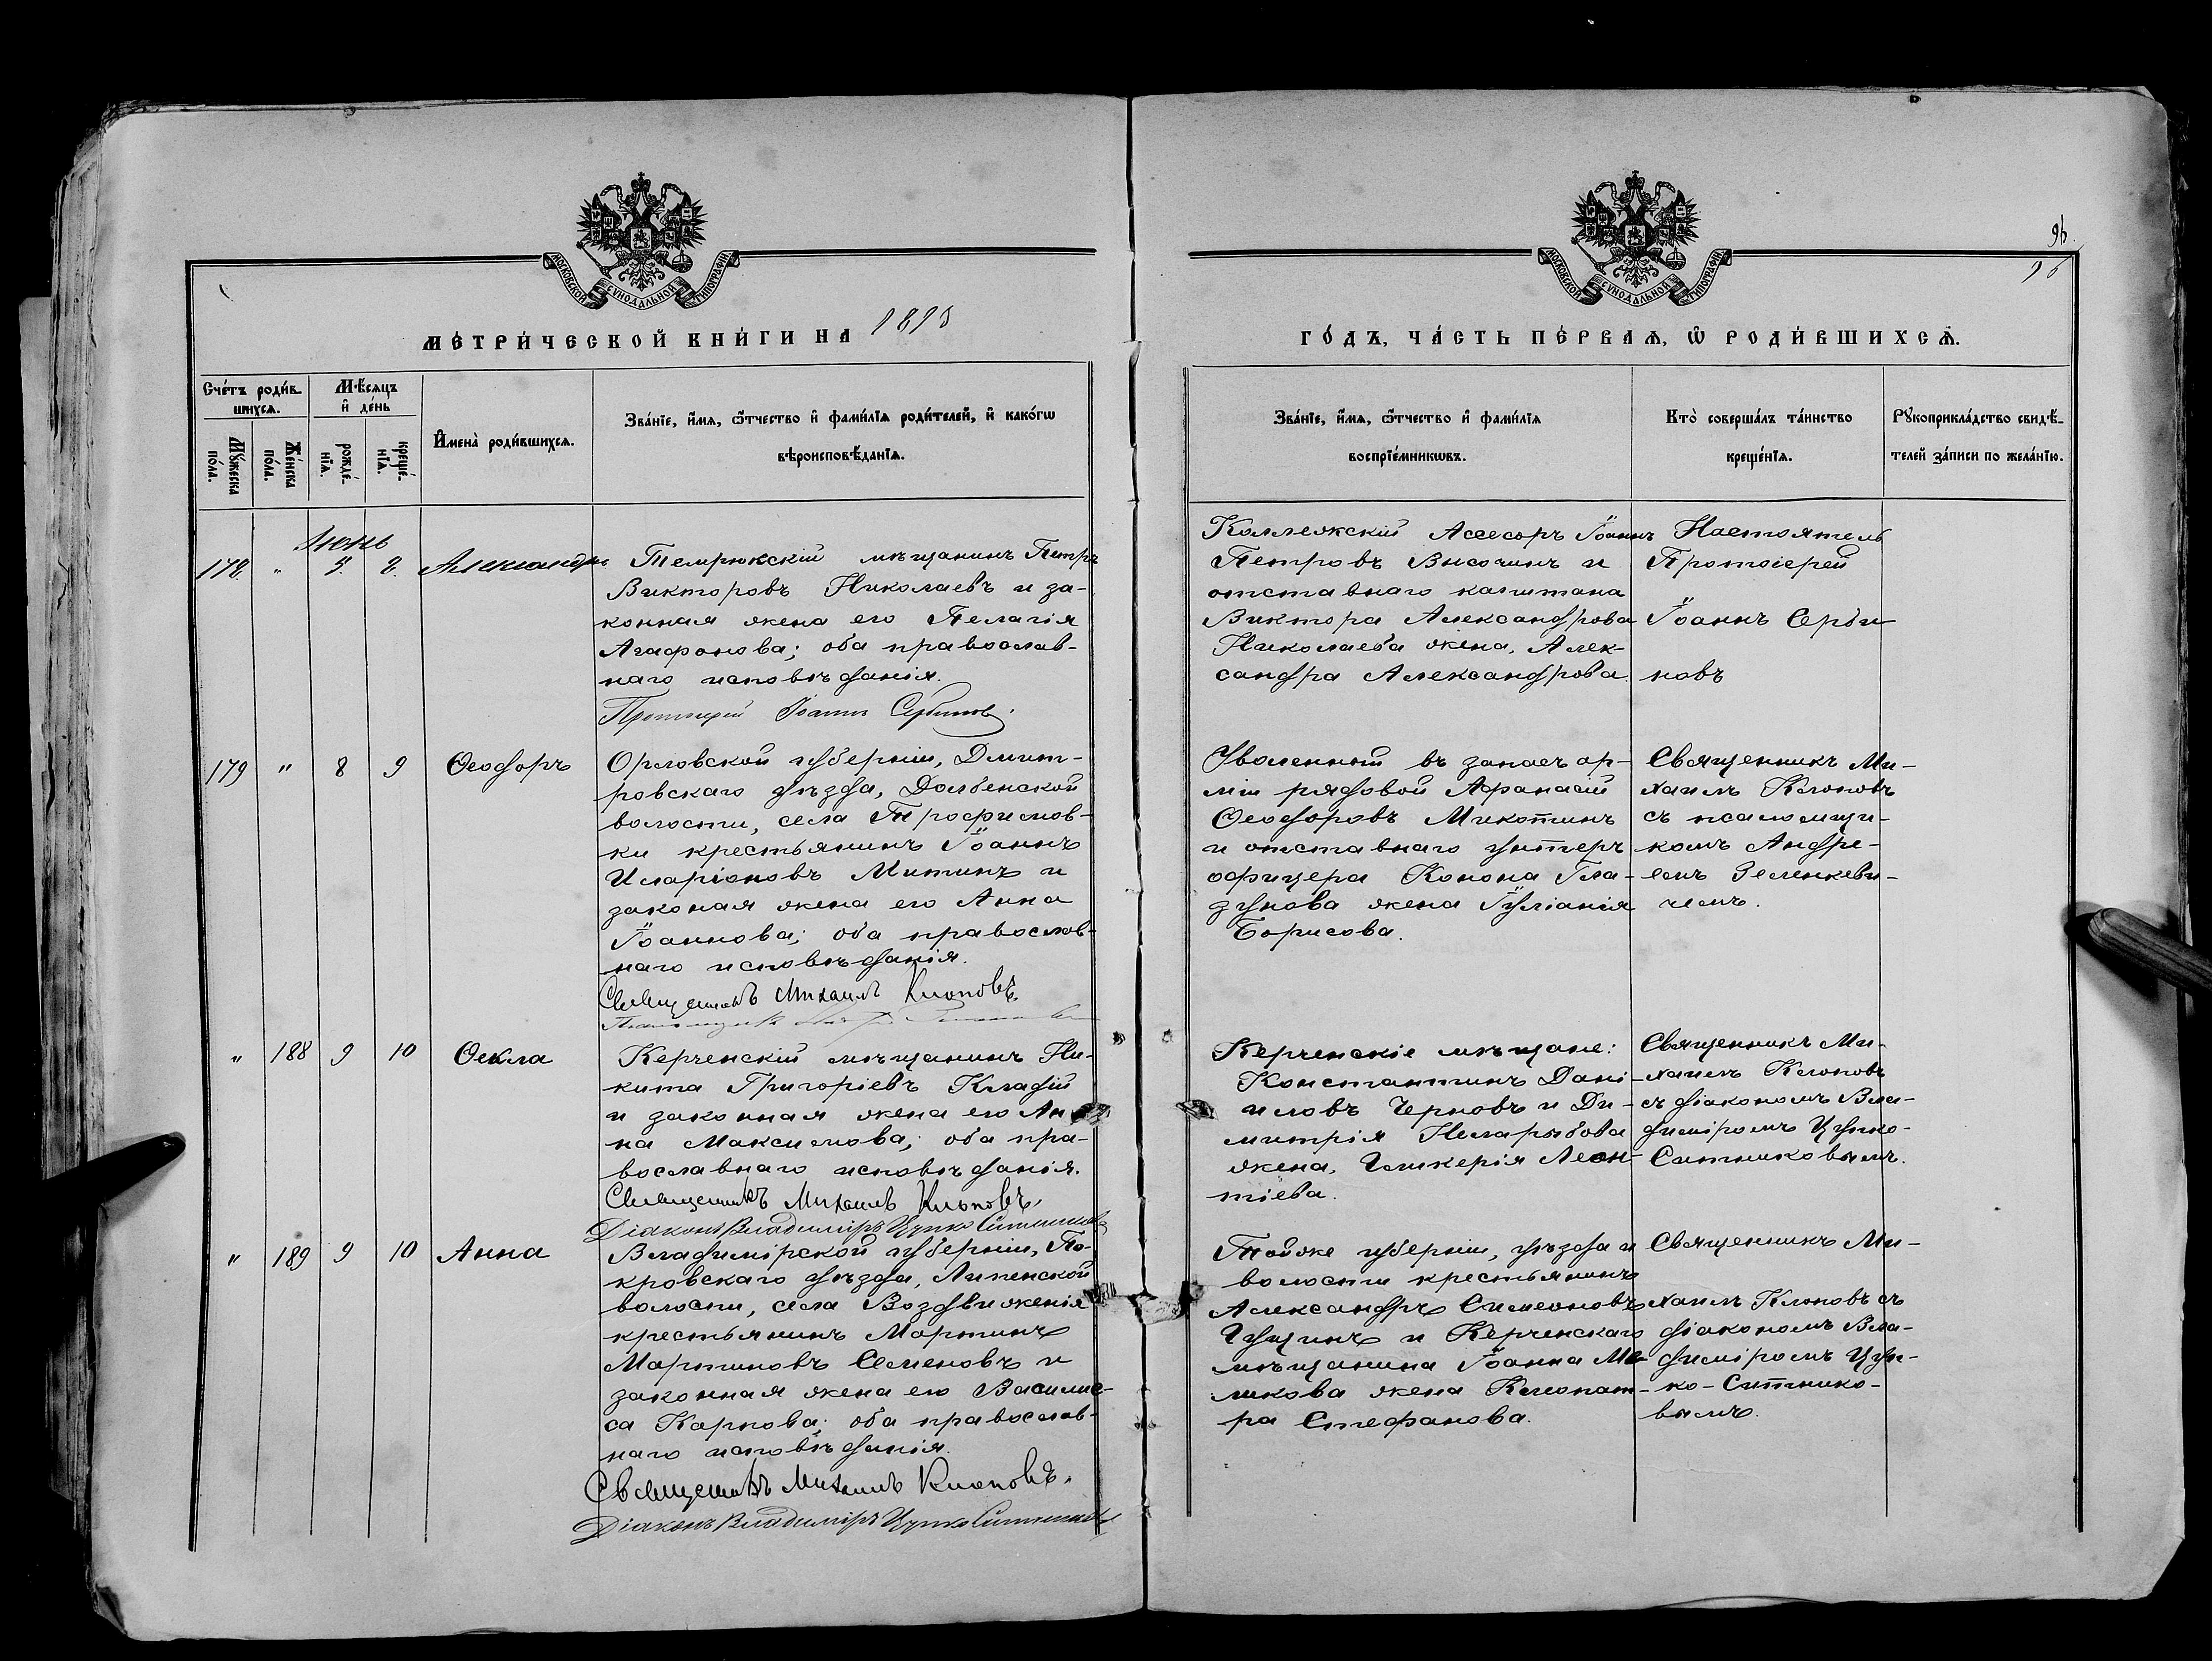 МОСКОВСКОЙ СѴНОДАЛЬНОЙ ТИПОГРАФІИ
МЕТРИ́ЧЕСКОЙ КНИ́ГИ НА 1895
Сче́тъ роди́в-
шихсѧ.
Мꙋ́жеска
по́ла.
Же́нска
по́ла.
Мѣ́сяцъ
и҆ де́нь
рожде́-
нїѧ.
креще́-
нїѧ.
И҆мена̀ роди́вшихсѧ.
Зва́нїе, и҆́мѧ, ѻ҆́тчество и҆ фами́лїѧ роди́телей, и҆ како́гѡ
вѣроисповѣ́данїѧ.
Іюнь
178. " 5. 8. Александръ
Темрюкскій мѣщанинъ Петръ
Викторовъ Николаевъ и за-
конная жена его Пелагія
Агафонова; оба православ-
наго исповѣданія.
Протоіерей Іоаннъ Сербиновъ.
179 " 8 9 Ѳеодоръ
Орловской губерніи, Дмит-
ровскаго уѣзда, Долбенской
волости, села Трофимов-
ки крестьянинъ Іоаннъ
Иларіоновъ Митинъ и
законая жена его Анна
Іоаннова; оба православ-
наго исповѣданія.
Священникъ Михаилъ Клоповъ.
" 188 9 10 Ѳекла
Керченскій мѣщанинъ Ни-
кита Григоріевъ Кладій
и законная жена его Ан-
на Максимова; оба пра-
вославнаго исповѣданія.
Священникъ Михаилъ Клоповъ.
Діаконъ Владиміръ Цупко Ситниковъ
" 189 9 10 Анна
Владимірской губерніи, По-
кровскаго уѣзда, Липенской
волости, села Воздвиженія
крестьянинъ Мартинъ
Мартиновъ Семеновъ и
законная жена его Василис-
са Карпова; оба православ-
наго исповѣданія.
Священникъ Михаилъ Клоповъ.
Діаконъ Владиміръ Цупко Ситниковъ
96.
96
МОСКОВСКОЙ СѴНОДАЛЬНОЙ ТИПОГРАФІИ
ГО́ДЪ, ЧА́СТЬ ПЕ́РВАѦ, Ѡ҆ РОДИ́ВШИХСѦ.
Зва́нїе, и҆́мѧ, ѻ҆́тчество и҆ фами́лїѧ
воспрїе́мникѡвъ.
Кто̀ соверша́лъ та́инство
креще́нїѧ.
Рꙋкоприкла́дство свидѣ́-
телей за́писи по жела́нїю.
Коллежскій Асессоръ Іоаннъ
Петровъ Височинъ и
отставнаго капитана
Виктора Александрова
Николаева жена, Алек-
сандра Александрова.
Настоятель
Протоіерей
Іоаннъ Серби
новъ
Уволенный въ запасъ ар-
міи рядовой Афанасій
Ѳеодоровъ Микотинъ
и отставнаго унтеръ
офицера Конона Гла-
зунова жена Іуліанія
Борисова.
Священникъ Ми-
хаилъ Клоповъ
съ псаломщи-
комъ Андре-
емъ Зеленкеви-
чемъ.
Керченскіе мѣщане:
Константинъ Дані-
иловъ Черновъ и Ди-
митрія Неларыбова
жена, Гликерія Леон-
тіева.
Священникъ Ми-
хаилъ Клоповъ
съ діакономъ Вла-
диміромъ Цупко-
Ситниковымъ.
Той же губерніи, уѣзда и
волости крестьянинъ
Александръ Симеоновъ
Гущинъ и Керченскаго
мѣщанина Іоанна Ме-
ликова жена Клеопат-
ра Стефанова.
Священникъ Ми-
хаилъ Клоповъ съ
діакономъ Вла-
диміромъ Цуп-
ко-Ситнико-
вымъ.